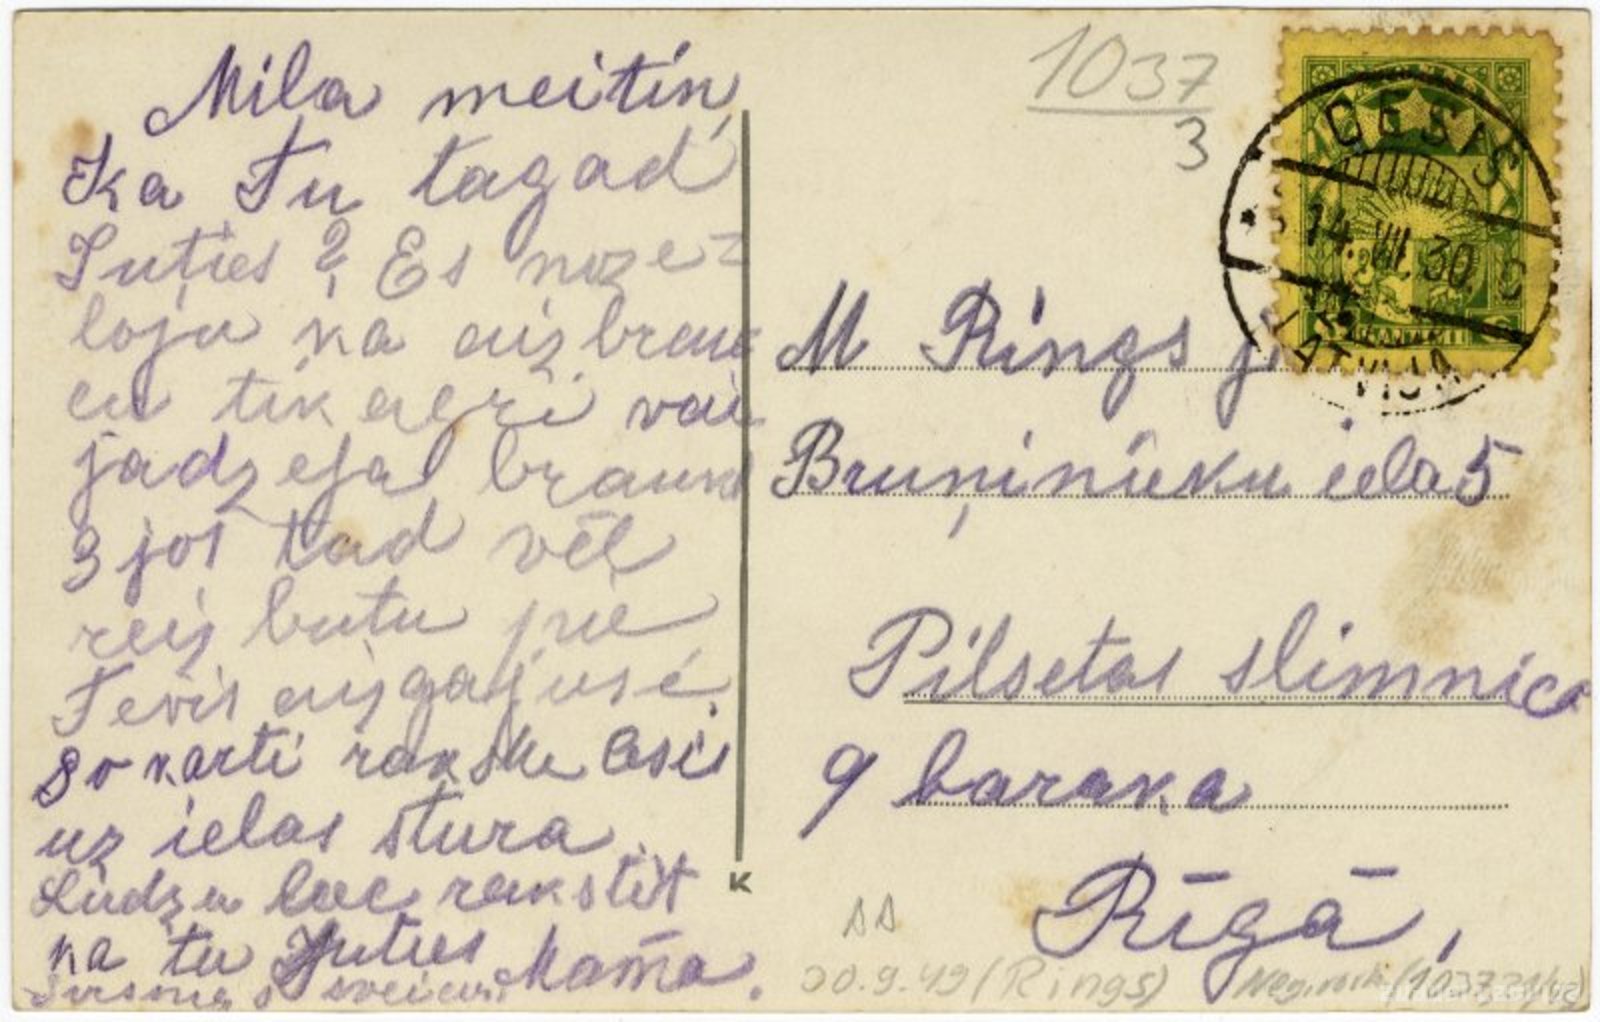 Mila meitiņ,
Ka Tu tagad
Juties? Es nože-
loju ka aizbrau
cu tik agri vai
jadzeja braukt
3jos tad vēl
reiz butu pie
Tevis aizgajuse.
So karti rakstu Cesis
uz ielas stura.
Ludzu lai raksta
ka tu Juties
Mama.
1037
3
CĒSIS
14. VII. 30
LATVIJA
M Rings j
Bruņinieku iela 5
Pilsetas slimnica
9 baraka
Rīgā,
K
20.9.49 (Rings)